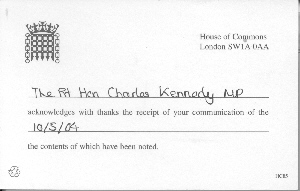 House of Commons
London SW1A 0AA
The Rt Hon Charles Kennedy MP
acknowledges with thanks the receipt of your communication of the
10/5/04
the contents of which have been noted.
HC85